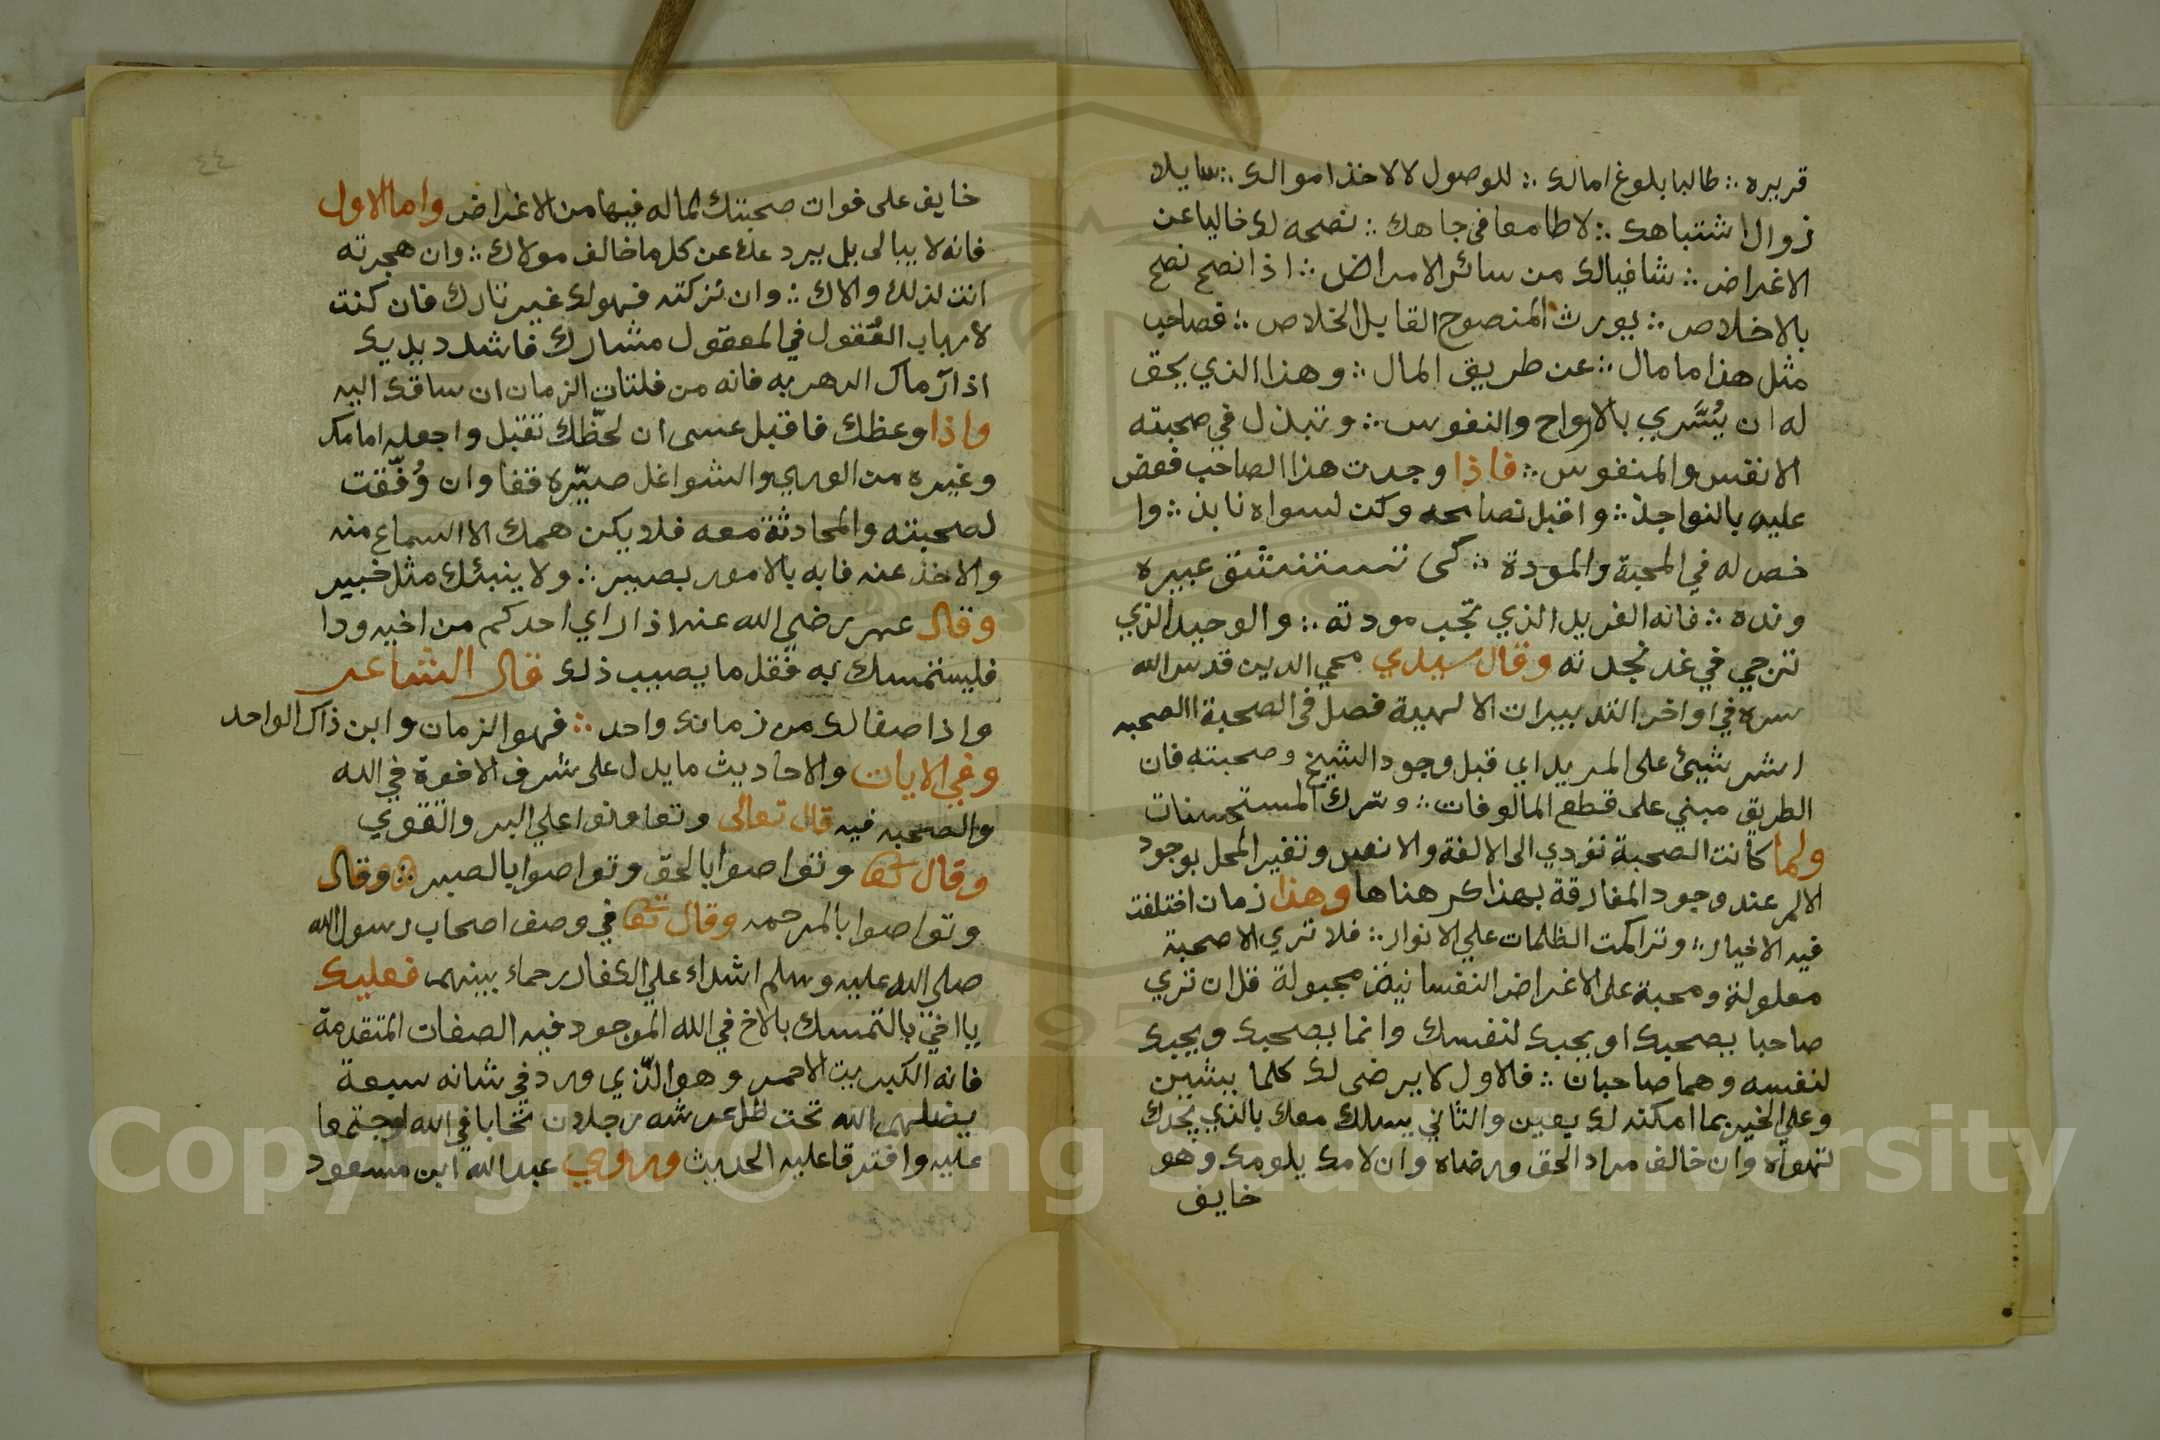 قريره ∴ طالبا بلوغ امالك ∴ للوصول لا لاخذ اموالك ∴ سايلا
زوال اشتباهك ∴ لا طامعا في جاهك ∴ نصحه لك خاليا عن
الاغراض ∴ شافيا لك من سائر الامراض ∴ اذا نصح نصح
بالاخلاص ∴ يورث المنصوح القايل الخلاص ∴ فصاحب
مثل هذا ما مال ∴ عن طريق المال ∴ وهذا الذي يحق
له ان يُشَري بالارواح والنفوس ∴ وتبذل في صحبته
الانفس والمنفوس ∴ فاذا وجدت هذا الصاحب فعض
عليه بالنواجذ ∴ واقبل نصايحه وكن لسواه نابذ ∴ وا
خص له في المحبة والمودة ∴ كى تستنشق عبيره
ونده ∴ فانه الفريد الذي تجب مودته ∴ والوحيد الذي
ترجي في غد نجدته وقال سيدي محي الدين قدس الله
سره في اواخر التدبيرات الالهية فصل في الصحبة االصحبه
اشر شيئ على المريد اي قبل وجود الشيخ وصحبته فان
الطريق مبني على قطع المالوفات ∴ وترك المستحسنات
ولما كانت الصحبة تؤدي الى الالفة والانس وتغير المحل بوجود
الالم عند وجود المفارقة بهذا كرهناها وهذا زمان اختلفت
فيه الاخيار ∴ وتراكمت الظلمات علي الانوار ∴ فلا تري الا صحبة
معلولة ومحبة على الاغراض النفسانية مجبولة قل ان تري
صاحبا يصحبك او يحبك لنفسك وانما يصحبك ويحبك
لنفسه وهما صاحبان ∴ فالاول لا يرضى لك كلما يشين
وعلي الخير بما امكنه لك يعين والثاني يسلك معك بالذي يجدك
تهواه وان خالف مراد الحق ورضاه وان لامك يلومك وهو
خايف
٤٤
خايف على فوات صحبتك لماله فيها من الاغراض واما الاول
فانه لا يبالى بل يردعك عن كل ما خالف مولاك ∴ وان هجرته
انت لذلك والاك ∴ وان تركته فهو لك غير تارك فان كنت
لارباب العُقول في المعقول مشارك فاشدد يديك
اذا رماك الدهر به فانه من فلتات الزمان ان ساقك اليه
واذا وعظك فاقبل عسى ان لحظّك تقبل واجعله امامك
وغيره من الوري والشواغل صيّره قفا وان وُفّقت
لصحبته والمحادثة معه فلا يكن همك الا السماع منه
والاخذ عنه فابه بالامور بصير ∴ ولا ينبئك مثل خبير
وقال عمر رضي الله عنه اذا راي احدكم من اخيه ودا
فليستمسك به فقل ما يصيب ذلك قال الشاعر
واذا صفا لك من زمانك واحد ∴ فهو الزمان وابن ذاك الواحد
وفي الايات والاحاديث ما يدل على شرف الاخوة في الله
والصحبه فيه قال تعالى وتعاونوا علي البر والتقوي
وقال تعا وتواصوا بالحق وتواصوا بالصبر ∴ وقال
وتواصوا بالمرحمه وقال تعا في وصف اصحاب رسول الله
صلى الله عليه وسلم اشداء علي الكفار رحماء بينهم فعليك
يا اخي بالتمسك بالاخ في الله الموجود فيه الصفات المتقدمة
فانه الكبريت الاحمر وهو الّذي ورد في شانه سبعة
يضلهم الله تحت ظل عرشه رجلان تحابا في الله اجتمعا
عليه وافترقا عليه الحديث وروي عبد الله ابن مسعود
Copyright © King Saud University
1957